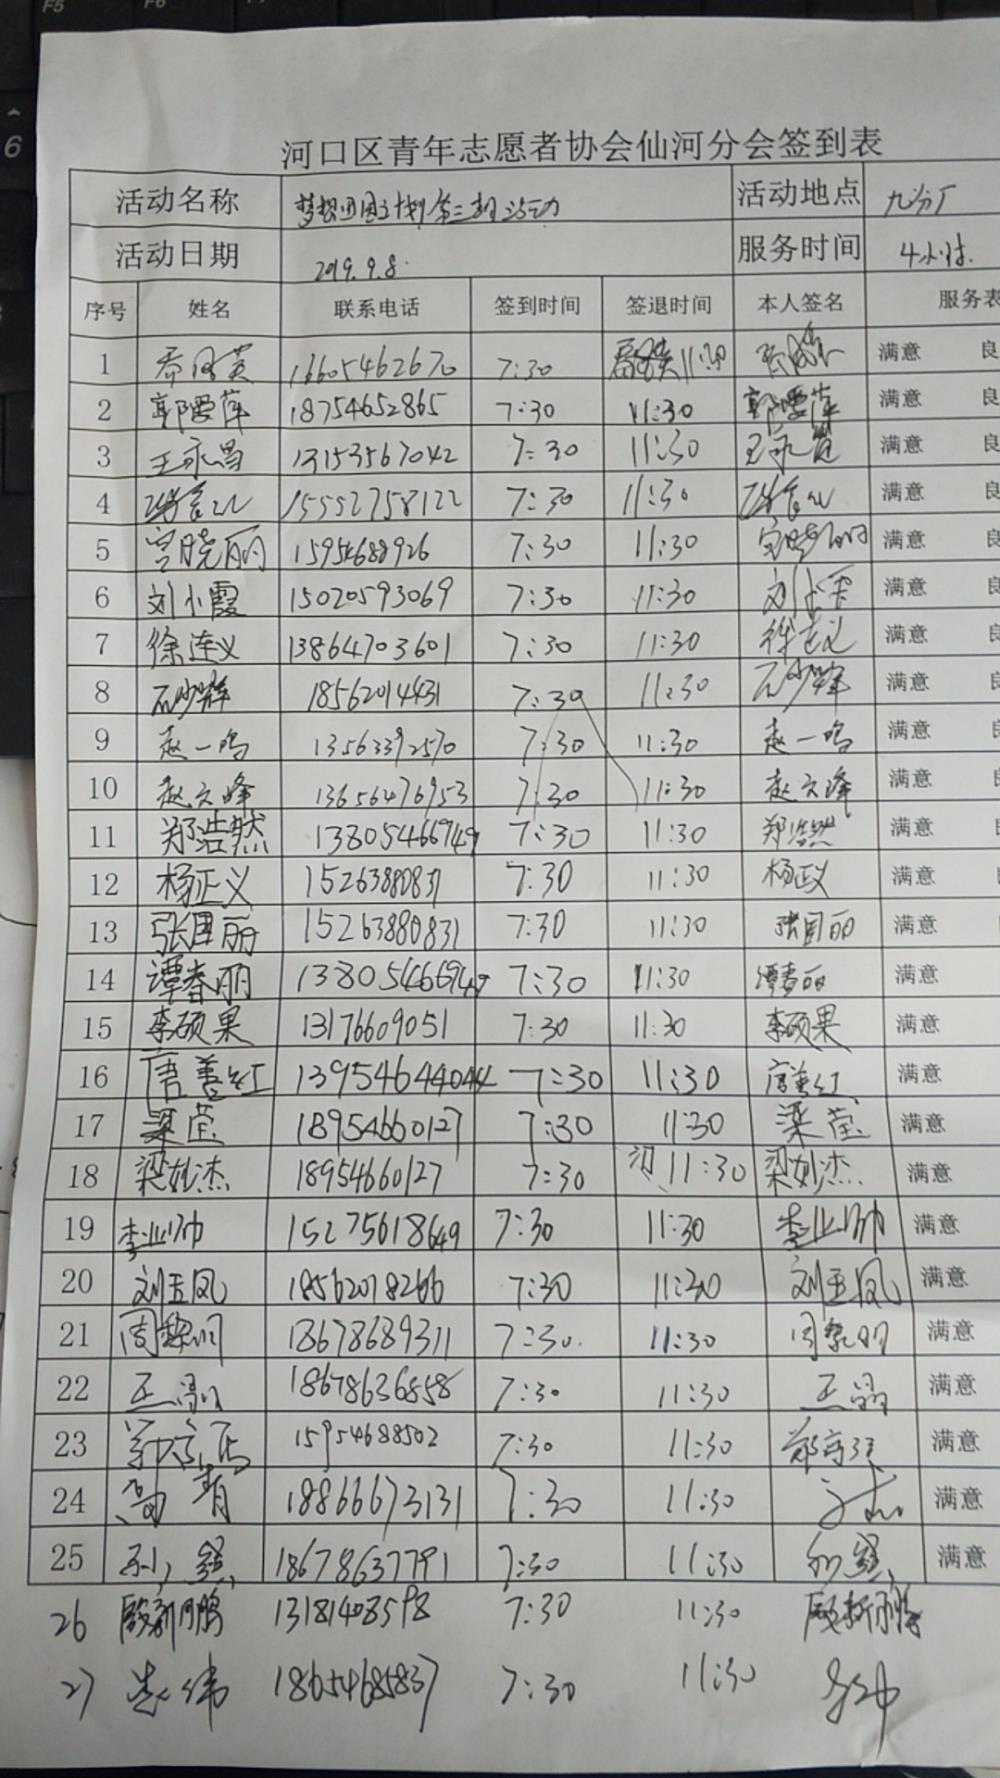 F5
6
河口区青年志愿者协会仙河分会签到表
活动名称 梦想 计划第三期活动 活动地点 九分厂
活动日期 2019.9.8. 服务时间 4小时.
序号 姓名 联系电话 签到时间 签退时间 本人签名 服务表
1 16605462670 7:30 11:30 满意 良
2 18754652865 7:30 11:30 满意 良
3 王永昌 13153567042 7:30 11:30 满意 良
4 15552758122 7:30 11:30 满意 良
5 宫晓丽 15954688926 7:30 11:30 宫晓丽 满意 良
6 刘小霞 15020593069 7:30 11:30 刘小霞 满意 良
7 徐连义 13864703601 7:30 11:30 满意 良
8 石少辉 18562014431 7:30 11:30 石少辉 满意 良
9 赵一鸣 13563392570 7:30 11:30 赵一鸣 满意
10 赵文峰 13656476953 7:30 11:30 赵文峰 满意
11 郑浩然 13805466949 7:30 11:30 郑浩然 满意
12 杨正义 15263880831 7:30 11:30 杨正义 满意
13 张国丽 15263880831 7:30 11:30 张国丽 满意
14 谭春丽 13805466949 7:30 11:30 谭春丽 满意
15 李硕果 13176609051 7:30 11:30 李硕果 满意
16 唐善红 13954644044 7:30 11:30 唐善红 满意
17 梁莹 18954660127 7:30 11:30 梁莹 满意
18 梁妙杰 18954660127 7:30 11:30 梁妙杰 满意
19 李业帅 15275618649 7:30 11:30 李业帅 满意
20 刘玉凤 18562018266 7:30 11:30 刘玉凤 满意
21 周黎明 18678689311 7:30. 11:30 满意
22 王晶 18678636858 7:30 11:30 王晶 满意
23 15954688502 7:30 11:30 满意
24 高青 18866673131 7:30 11:30 满意
25 18678637791 7:30 11:30 满意
26 殷新鹏 13181408598 7:30 11:30 殷新鹏
27 18654685837 7:30 11:30